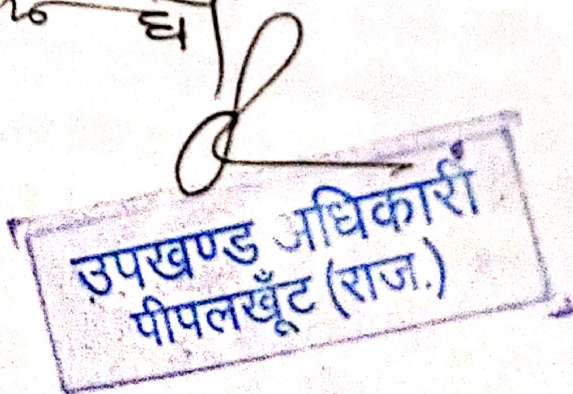 उपखण्ड अधिकारी
पीपलखूँट (राज.)